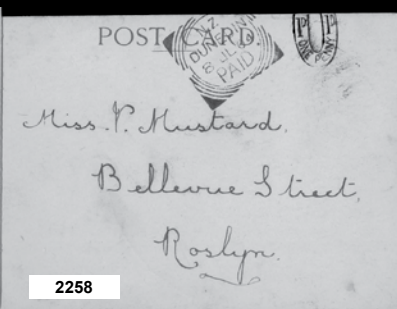 POST CARD
N.Z.
DUNEDIN
8 JL
PAID
1D 1D
ONE PENNY
Miss. P. Mustard.
Bellevue Street,
Roslyn.
2258